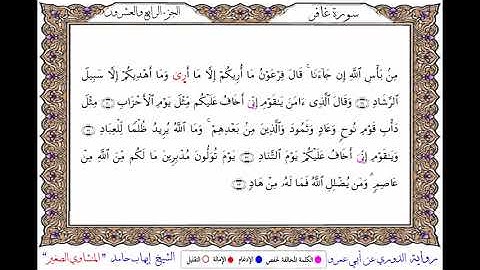 سورة غافر
الجزء الرابع والعشرون
مِنۢ بَأْسِ ٱللَّهِ إِن جَآءَنَا ۚ قَالَ فِرْعَوْنُ مَآ أُرِيكُمْ إِلَّا مَآ أَرَىٰ وَمَآ أَهْدِيكُمْ إِلَّا سَبِيلَ
ٱلرَّشَادِ وَقَالَ ٱلَّذِىٓ ءَامَنَ يَٰقَوْمِ إِنِّىَ أَخَافُ عَلَيْكُم مِّثْلَ يَوْمِ ٱلْأَحْزَابِ مِثْلَ
دَأْبِ قَوْمِ نُوحٍ وَعَادٍ وَثَمُودَ وَٱلَّذِينَ مِنۢ بَعْدِهِمْ ۚ وَمَا ٱللَّهُ يُرِيدُ ظُلْمًا لِّلْعِبَادِ
وَيَٰقَوْمِ إِنِّىَ أَخَافُ عَلَيْكُمْ يَوْمَ ٱلتَّنَادِ يَوْمَ تُوَلُّونَ مُدْبِرِينَ مَا لَكُم مِّنَ ٱللَّهِ مِنْ
عَاصِمٍ ۗ وَمَن يُضْلِلِ ٱللَّهُ فَمَا لَهُۥ مِنْ هَادٍ
رواية الدوري عن أبي عمرو
الكلمة المخالفة لحفص الإدغام الإمالة التقليل
الشيخ إيهاب حامد "المنشاوي الصغير"